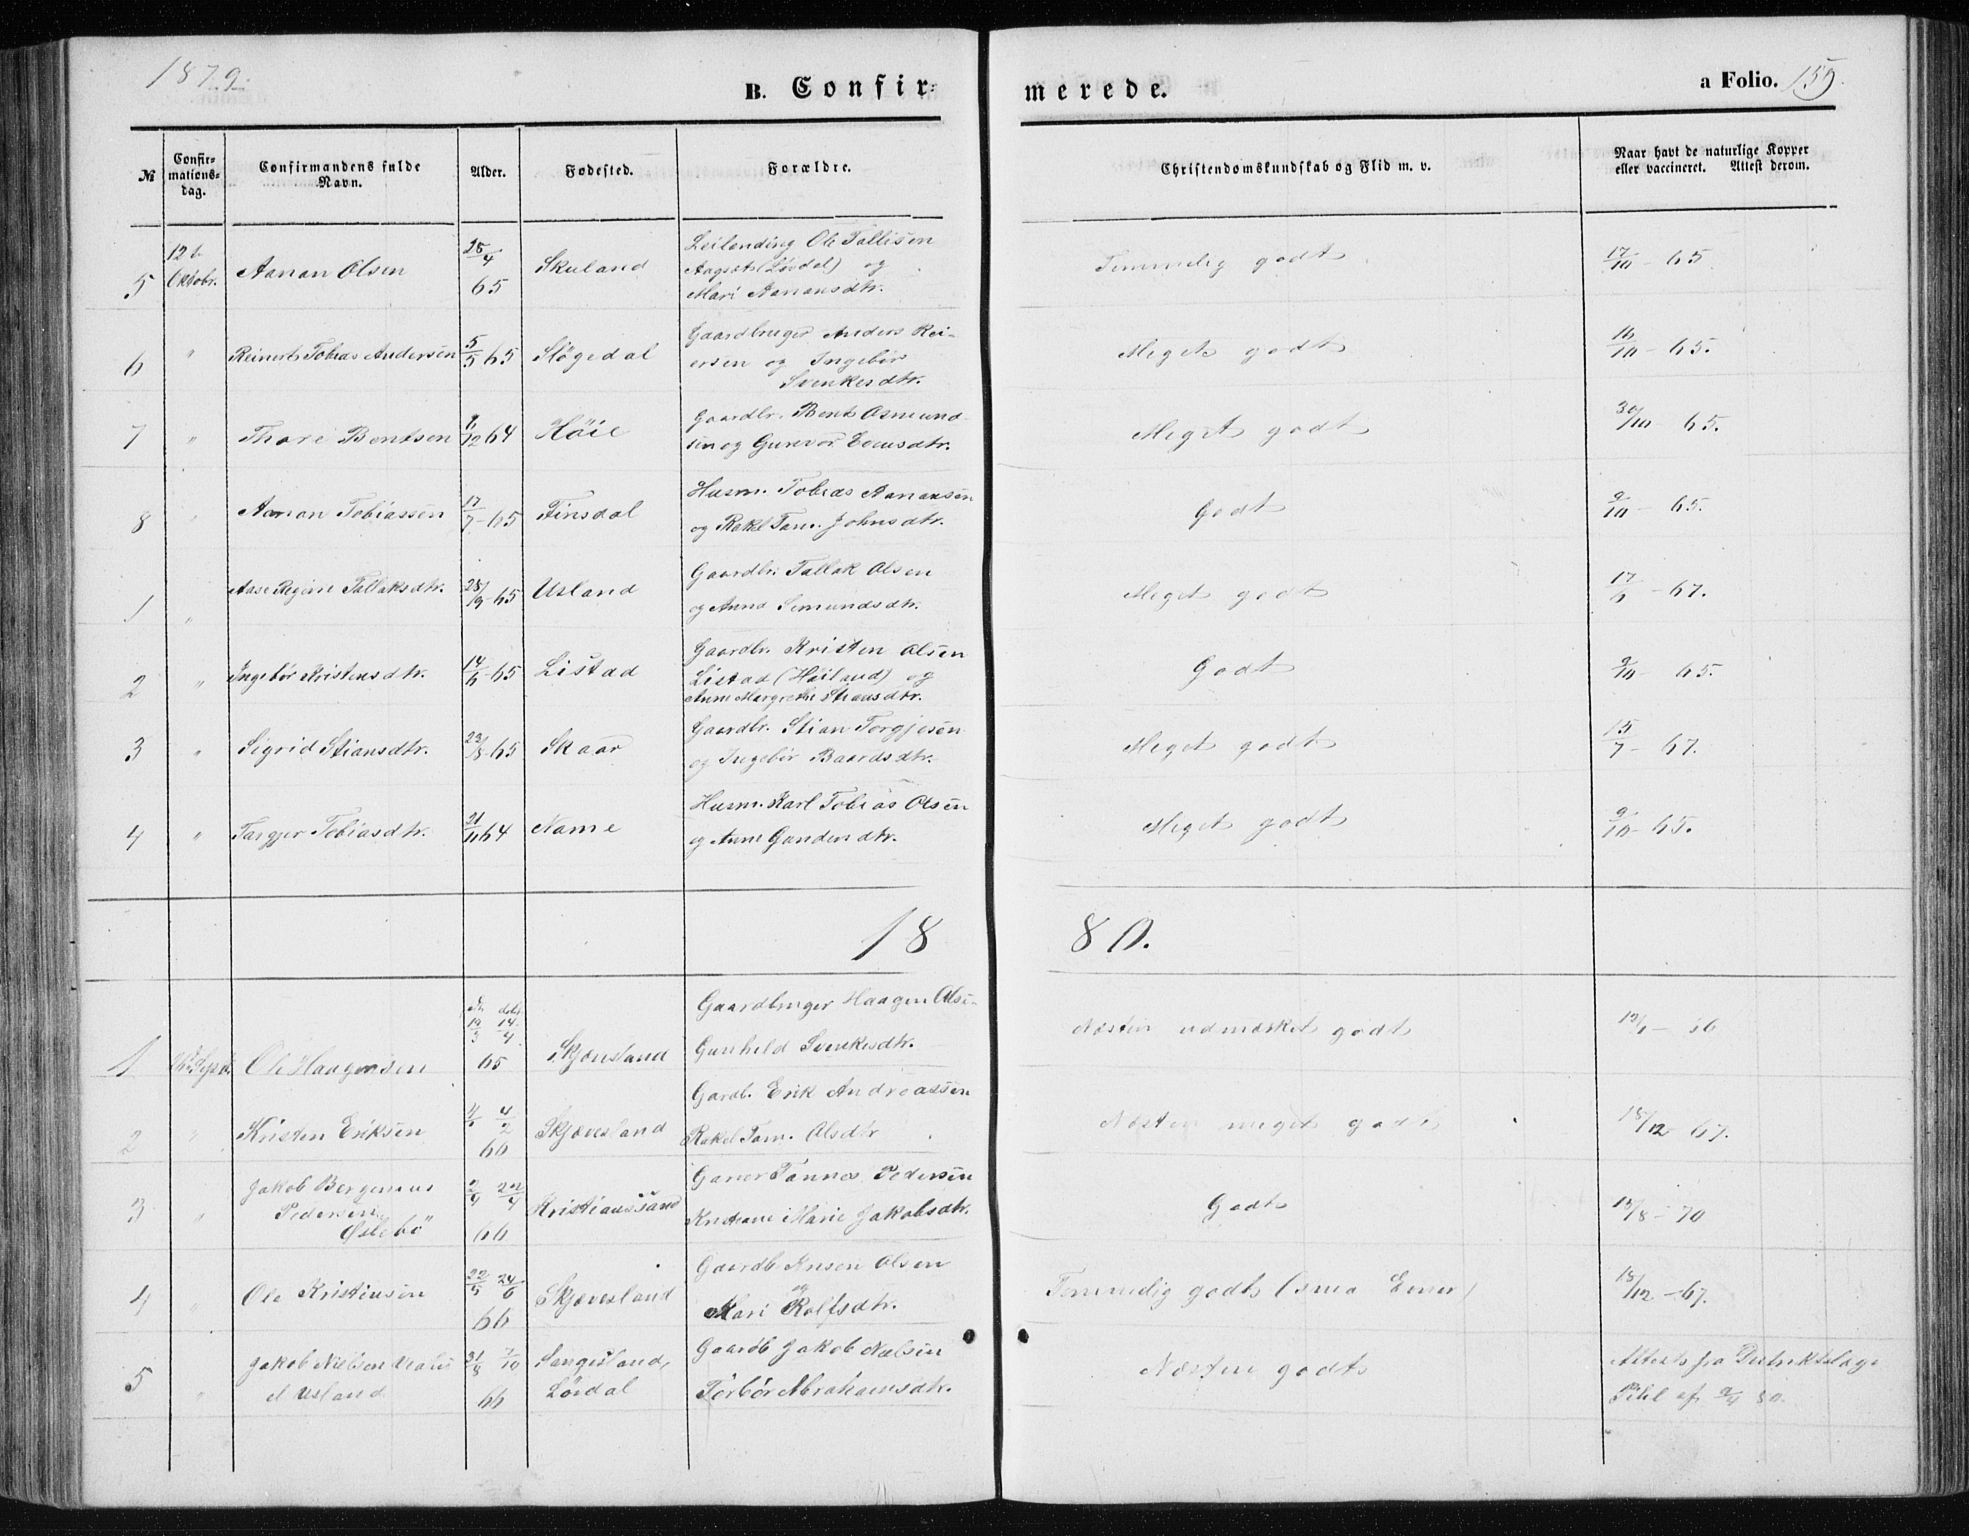 1879.
B. Confir=
merede.
a Folio. 159.
№
Confir=
mations=
dag.
Confirmandens fulde
Navn.
Alder.
Fødested.
Forældre.
Christendomskundskab og Flid m. v.
Naar havt de naturlige Kopper
eller vaccineret. Attest derom.
5 12t Oktobr. Aanan Olsen 25/4 65 Skuland
Leilending Ole Tallisen
(Lördal) og
Mari Aanansdtr.
Temmelig godt 17/10 - 65
6 " Reinert Tobias Andersen 5/5 65 Slögedal
Gaardbruger Anders Rei-
ersen og Ingebör
Svenkesdtr.
Meget godt 16/10 - 65.
7 " Thore Bentsen 1/12 64 Höie
Gaardbr. Bent Osmund-
sen og Gunvor Evensdtr.
Meget godt 30/10 65.
8 " Aanan Tobiassen 17/7 - 65 Finsdal
Husm. Tobias Aanansen
og Rakel Tom. Johnsdtr.
Godt 9/10 - 65.
1 " Aase Regine Tallaksdtr. 28/9 - 65 Usland
Gaardbr. Tallak Olsen
og Anna Semundsdtr.
Meget godt 17/6 - 67.
2 " Ingebör Kristensdtr. 14/6 - 65 Listad
Gaardbr. Kristen Olsen
Listad (Höiland) og
Anne Margrethe Stiansdtr.
Godt 9/10 - 65.
3 " Sigrid Stiansdtr. 23/8 - 65 Skaar
Gaardbr. Stian Torgjesen
og Ingebör Baardsdtr.
Meget godt 15/7 - 67.
4 " Targjer Tobiasdtr. 21/11 64 Name
Husm. Karl Tobias Olsen
og Anne Gundersdtr.
Meget godt 9/10 - 65.
18 80.
1 Ole Haagensen 19/3 14/4 65 Skjævesland
Gaardbruger Haagen Olsen
Gunhild Svenkesdtr.
Næsten udmærket godt
2 " Kristen Eriksen 4/2 66 Skjævesland
Gardb. Erik Andreassen
Rakel Tom. Olsdtr
Næsten meget godt 18/12 - 67.
3 " Jakob Bergenius
Pedersen
Øslebö 2/4 22/4 66 Kristianssand
Garver Tönnes Pedersen
Kristiane Marie Jakobsdtr.
Godt 13/8 - 70
4 " Ole Kristensen 22/5 24/6 66 Skjævesland
Gaardb. Olsen
og
Mari Rolfsdtr.
Temmelig godt 18/12 - 67.
5 " Jakob Nielsen
Usland 31/8 7/10 66 Sangesland,
Lördal
Gaardb Jakob Nielsen
Törbör Abrahamsdtr.
Næsten godt
Attest fra Distriktslæge
Pihl af 2/4 80.